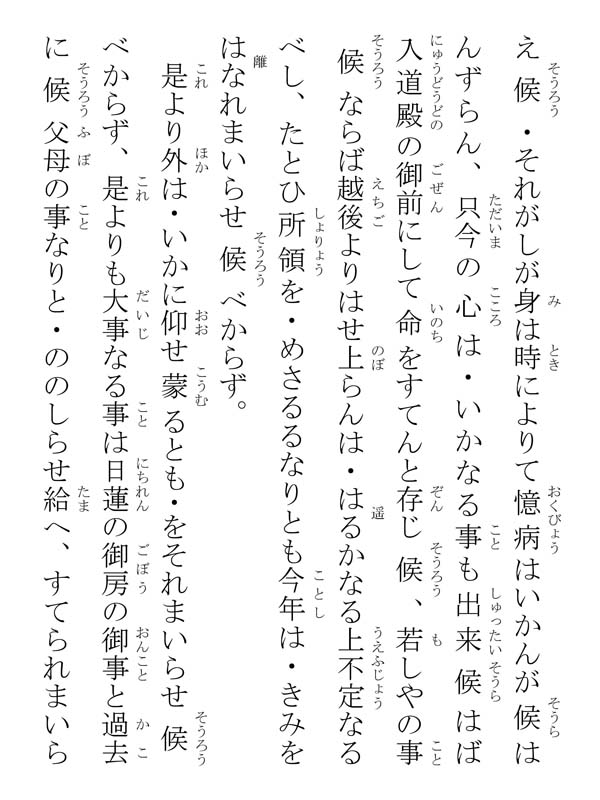 え候・それがしが身は時によりて憶病はいかんが候は
んずらん、只今の心は・いかなる事も出来候はば
入道殿の御前にして命をすてんと存じ候、若しやの事
候ならば越後よりはせ上らんは・はるかなる上不定なる
べし、たとひ所領を・めさるるなりとも今年は・きみを
はなれまいらせ候べからず。
是より外は・いかに仰せ蒙るとも・をそれまいらせ候
べからず、是よりも大事なる事は日蓮の御房の御事と過去
に候父母の事なりと・ののしらせ給へ、すてられまいら